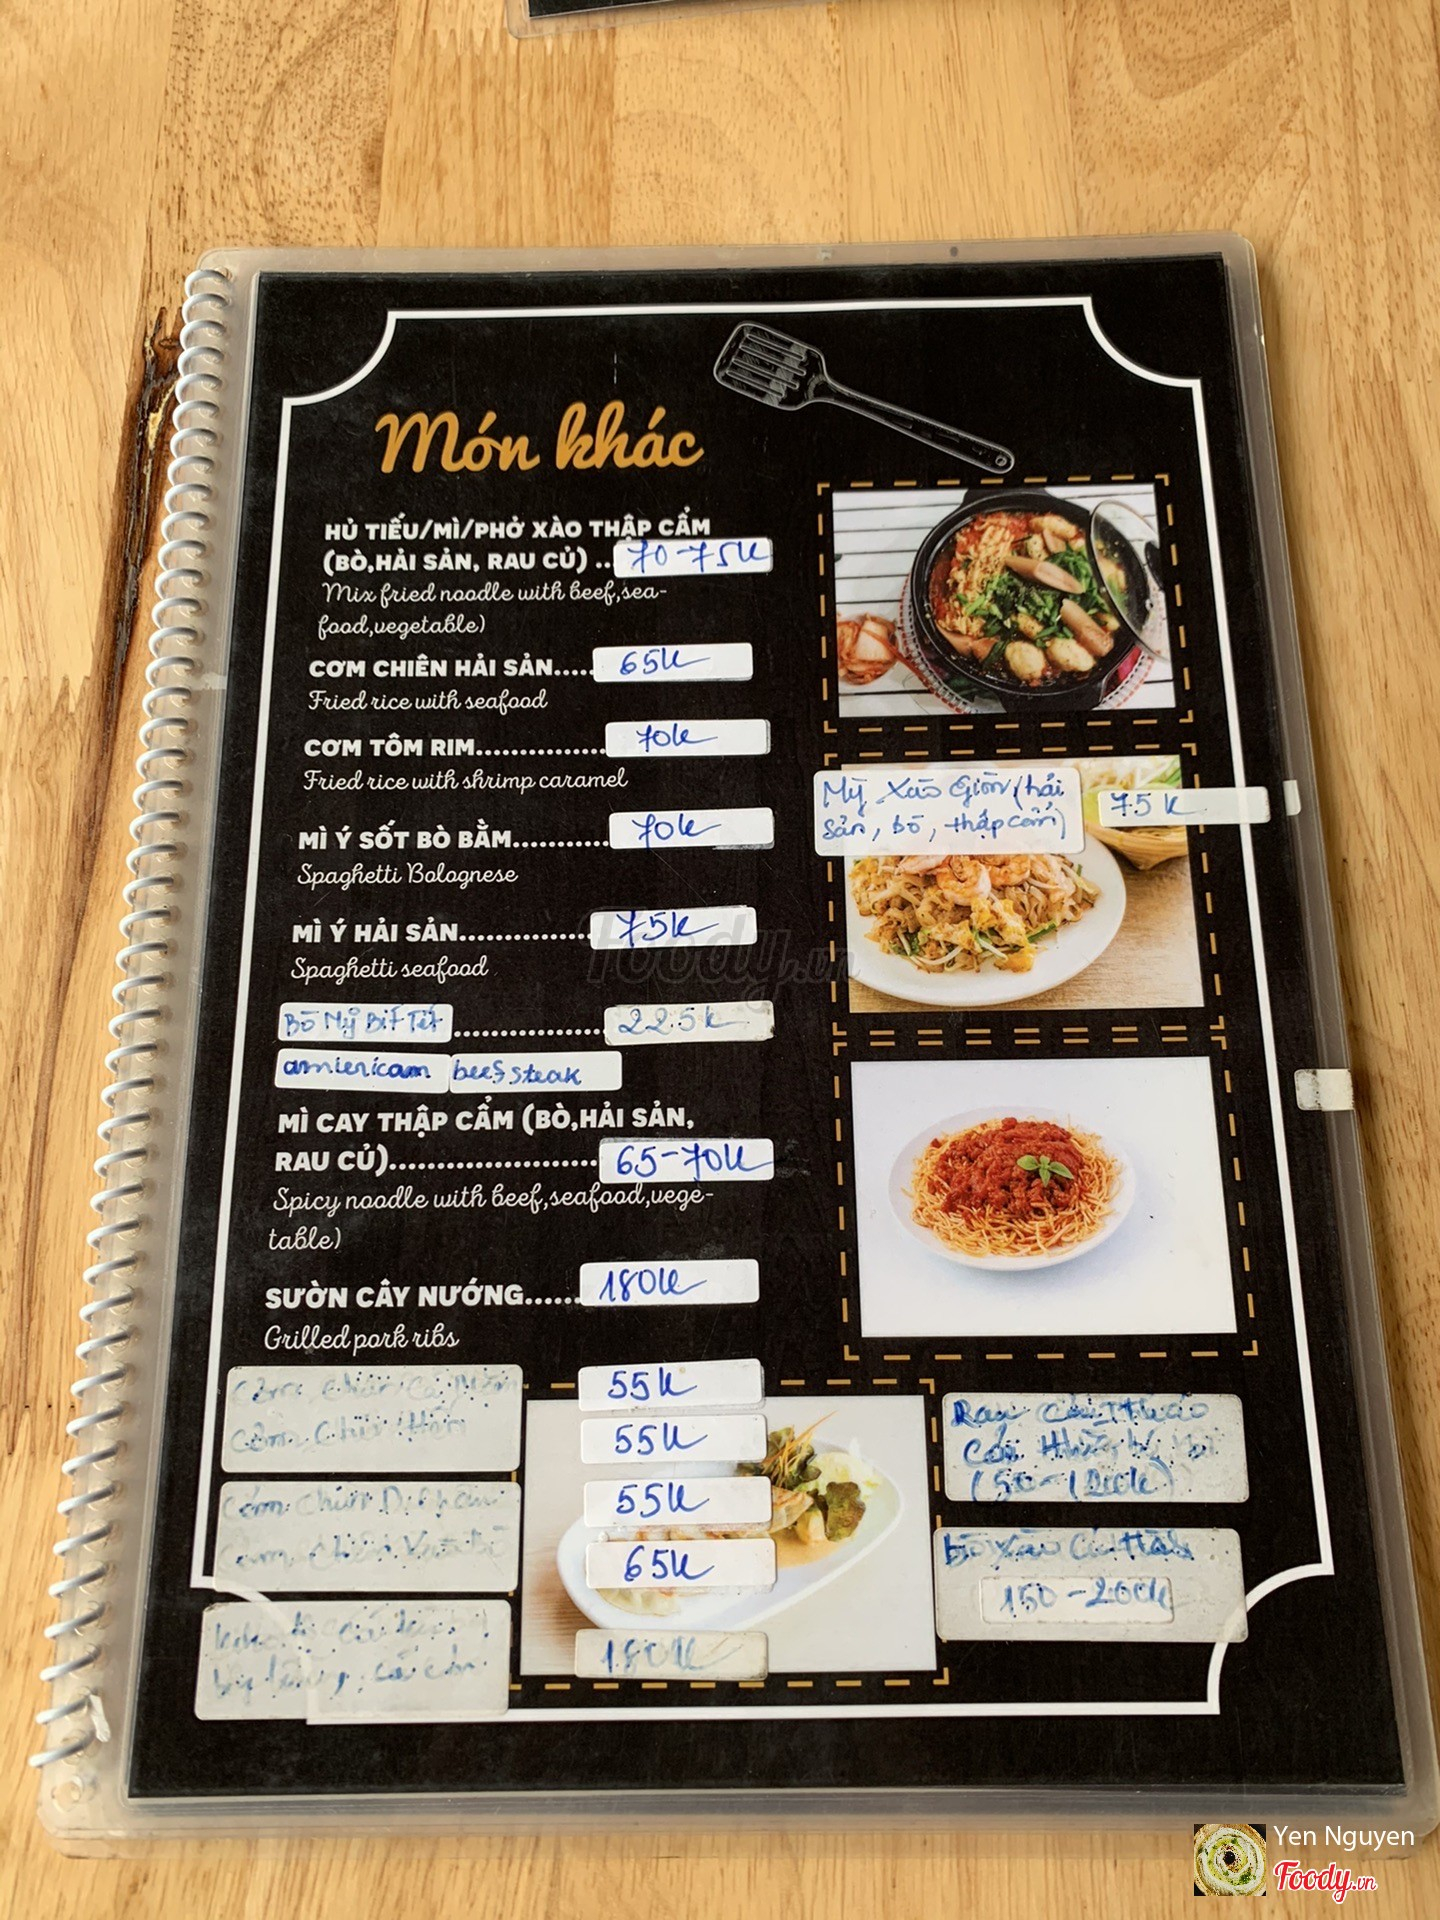 Món khác
HỦ TIẾU/MÌ/PHỞ XÀO THẬP CẨM
(BÒ,HẢI SẢN, RAU CỦ) .. 70-75K
Mix fried noodle with beef,sea-
food,vegetable)
CƠM CHIÊN HẢI SẢN..... 65K
Fried rice with seafood
CƠM TÔM RIM............... 70K
Fried rice with shrimp caramel
MÌ Ý SỐT BÒ BẰM........... 70K
Spaghetti Bolognese
MÌ Ý HẢI SẢN............... 75K
Spaghetti seafood
Bò Mỹ Bif Tết ................. 225K
amienicam beefsteak
MÌ CAY THẬP CẨM (BÒ,HẢI SẢN,
RAU CỦ)....................... 65-70K
Spicy noodle with beef,seafood,vege-
table)
SƯỜN CÂY NƯỚNG...... 180K
Grilled pork ribs
Mỳ Xào Giòn (hải
sản, bò, thập cẩm) 75K
55K
55K
55K
65K
180K
(50-120K)
Bò Xào
150-200K
Foody.vn
Yen Nguyen
Foody.vn